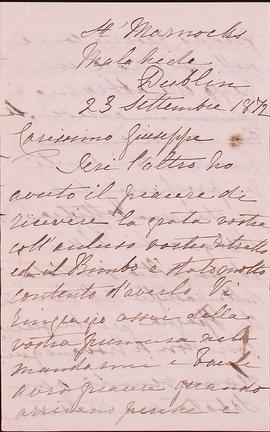 St Marnocks
Malahide
Dublin
23 Settembre 1872
Carissimo Giuseppe
Jeri l'altro ho
avuto il piacere di
ricevere la grata vostra
coll'acluso vostro ritratto
ed il Bimbo è stato molto
contento d'averlo. Vi
ringrazio assai della
vostra premura
mandarmi i
avrò piacere quando
arrivano perchè